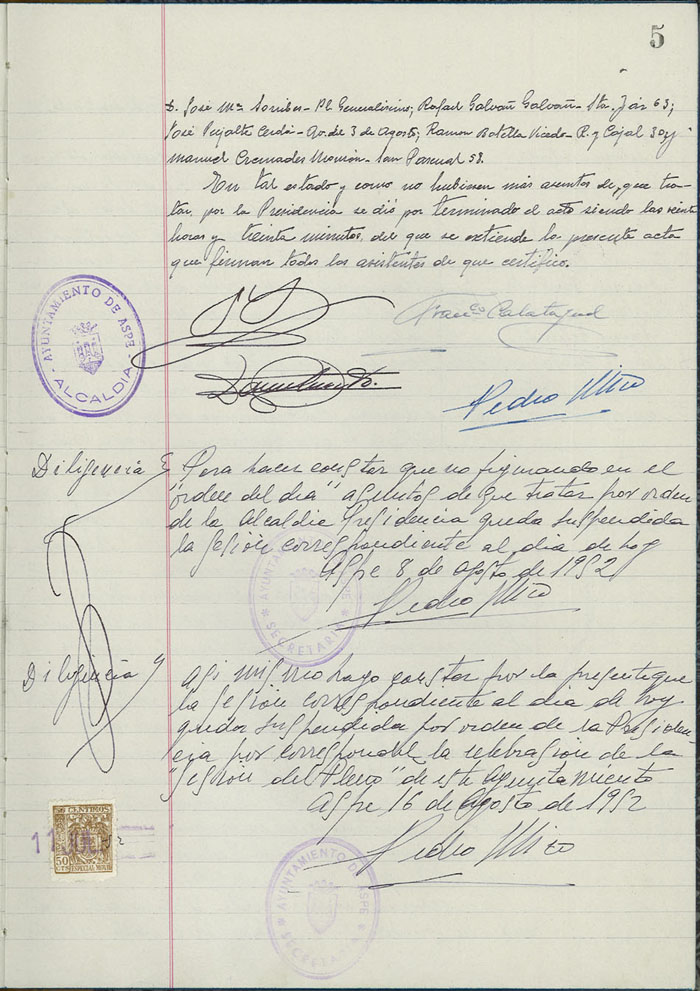 5
D. José Mª Sorribes - Pl. Generalísimo; Rafael Galvañ Galvañ - Stm. 63;
José Pujalte Cerdá - Av. del 3 de Agosto; Ramon Botella Vicedo - R. y Cajal 30 y
Manuel Cremades Monzón - San Pascual 58.
En tal estado y como no hubiesen más asuntos de que tra-
tar, por la Presidencia se dió por terminado el acto siendo las veinte
horas y treinta minutos, del que se extiende la presente acta
que firman todos los asistentes de que certifico.
AYUNTAMIENTO DE ASPE
ALCALDIA
Franco Calatayud
Pedro Miró
Diligencia Para hacer constar que no figurando en el
"orden del dia" asuntos de que tratar por orden
de la Alcaldia Presidencia queda suspendida
la sesión correspondiente al dia de hoy
Aspe 8 de agosto de 1952
AYUNTAMIENTO DE ASPE
SECRETARIA
Pedro Miró
Diligencia y Asi mismo hago constar por la presente que
la sesión correspondiente al dia de hoy
queda suspendida por orden de la Presiden-
cia por corresponder la celebración de la
"Sesión del Pleno" de este Ayuntamiento
Aspe 16 de agosto de 1952
CENTIMOS
50
CTS
ESPECIAL MOVIL
Pedro Miró
AYUNTAMIENTO DE ASPE
SECRETARIA